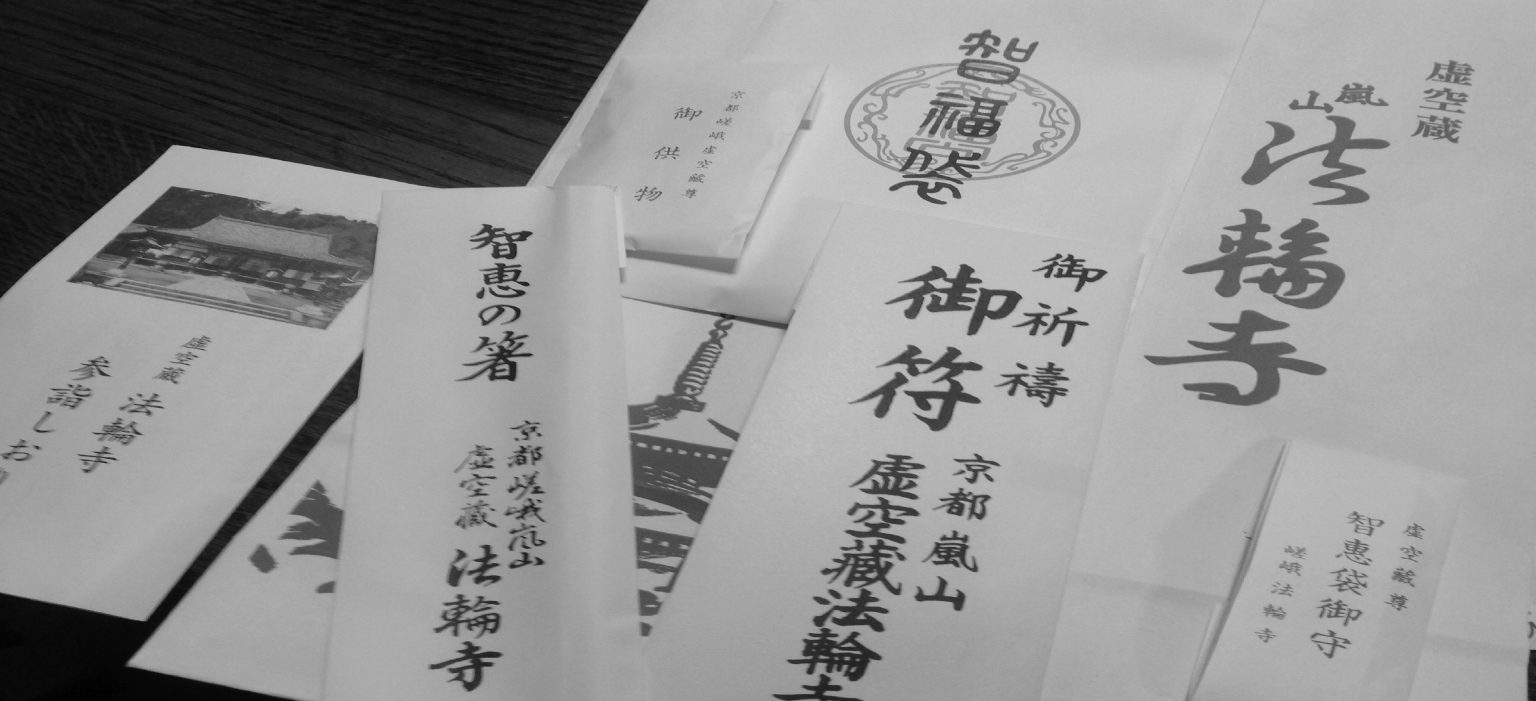 虚空蔵
嵐山
法輪寺
智福袋
京都嵯峨虚空蔵尊
御供物
御祈禱
御符
京都嵐山
虚空蔵法輪寺
智恵の箸
京都嵯峨嵐山
虚空蔵
法輪寺
虚空蔵
法輪寺
参詣しおり
虚空蔵尊
智恵袋御守
嵯峨法輪寺